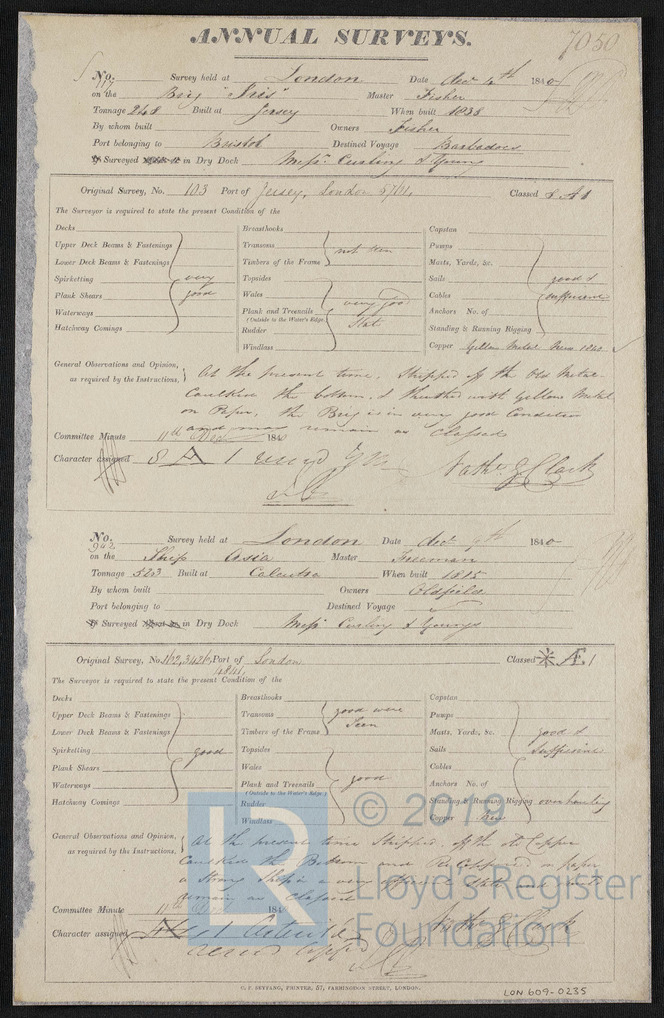 ANNUAL SURVEYS.
7050
No. Survey held at London Date Decr 4th 1840
on the Brig "Iris" Master Fisher
Tonnage 248 Built at Jersey When built 1838
By whom built Owners Fisher
Port belonging to Bristol Destined Voyage Barbadoes
Surveyed in Dry Dock Messrs Curling & Young
Original Survey, No. 103 Port of Jersey, London Classed 8 A 1
The Surveyor is required to state the present Condition of the
Decks Breasthooks Capstan
Upper Deck Beams & Fastenings Transoms not seen Pumps
Lower Deck Beams & Fastenings Timbers of the Frame Masts, Yards, &c.
Spirketting very Topsides Sails good &
Plank Shears good Wales very good Cables sufficient
Waterways Plank and Treenails State Anchors No. of
(Outside to the Water's Edge)
Hatchway Comings Rudder Standing & Running Rigging
Windlass Copper Yellow Metal New 1840
General Observations and Opinion, At the present time, Stripped off the Old Metal
as required by the Instructions. Caulked the bottom, & sheathed with Yellow Metal
on Paper, the Brig is in very good Condition
and may remain as Classed
Committee Minute 11th 1840
Character assigned 8 A 1 Nathl G Clark
No. Survey held at London Date Decr 1840
942
on the Ship Asia Master Freeman
Tonnage 523 Built at Calcutta When built 1815
By whom built Owners Oldfield
Port belonging to Destined Voyage
Surveyed in Dry Dock Messrs Curling & Young
Original Survey, No. Port of London Classed Æ 1
The Surveyor is required to state the present Condition of the
Decks Breasthooks Capstan
Upper Deck Beams & Fastenings Transoms good were Pumps
Lower Deck Beams & Fastenings Timbers of the Frame Seen Masts, Yards, &c. good &
Spirketting good Topsides Sails Sufficient
Plank Shears Wales Cables
Waterways Plank and Treenails good Anchors No. of
(Outside to the Water's Edge)
Hatchway Comings Rudder Standing & Running Rigging overhauling
Windlass Copper New
General Observations and Opinion, At the present time Stripped off the old Copper
as required by the Instructions. Caulked the Bottom and ReCoppered on paper
a Strong Ship in a very State and
remain as Classed
Committee Minute 11th 184
Character assigned Nathl G Clark
C. F. SEYFANG, PRINTER, 57, FARRINGDON STREET, LONDON.
LON 609-0235
LR
© 2019
Lloyd's Register
Foundation